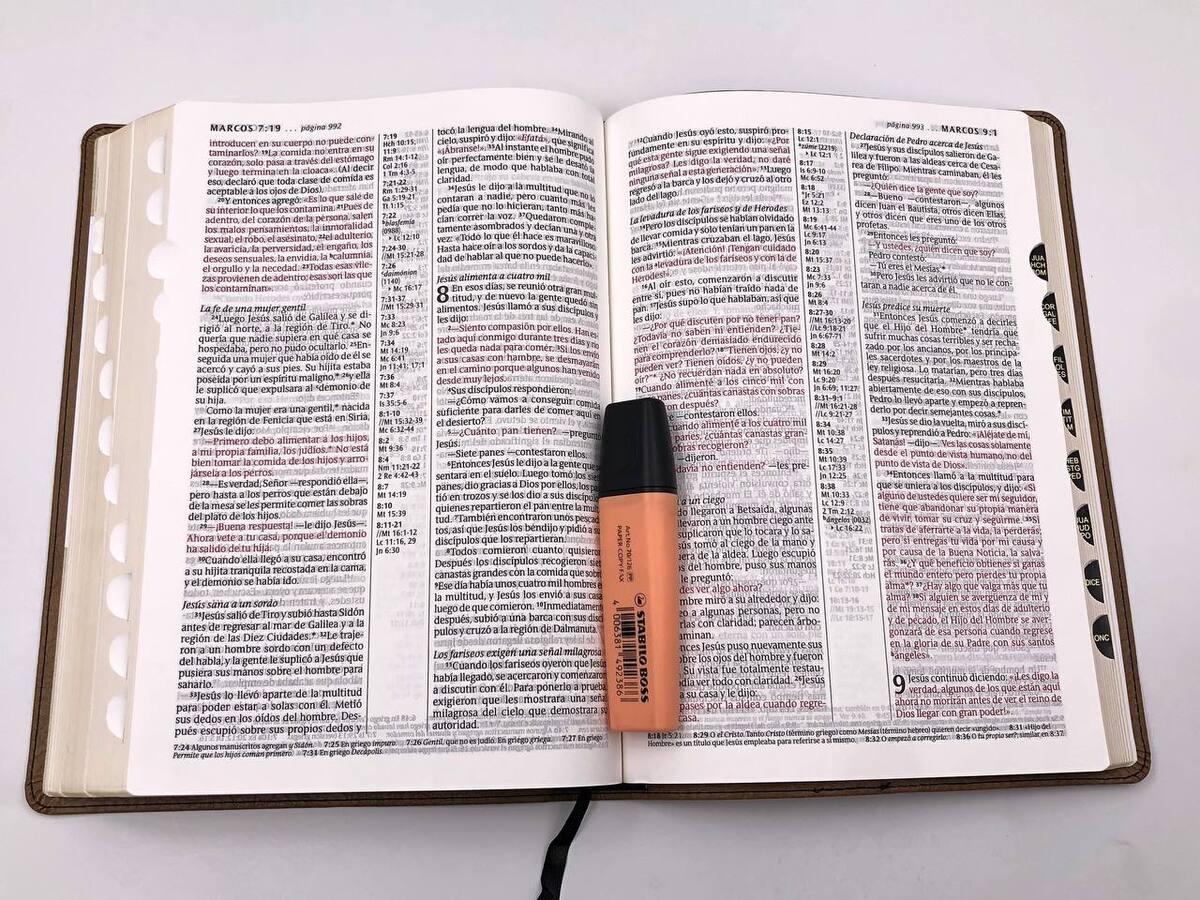 MARCOS 7:19 ... página 992
introducen en su cuerpo no puede con-
taminarlos? ¹⁹La comida no entra en su
corazón, solo pasa a través del estómago
y luego termina en la cloaca». (Al decir
eso, declaró que toda clase de comida es
aceptable a los ojos de Dios).
²⁰Y entonces agregó: «Es lo que sale de
su interior lo que los contamina. ²¹Pues de
adentro, del corazón de la persona, salen
los malos pensamientos, la inmoralidad
sexual, el robo, el asesinato, ²²el adulterio,
la avaricia, la perversidad, el engaño, los
deseos sensuales, la envidia, la ᵃcalumnia,
el orgullo y la necedad. ²³Todas esas vile-
zas provienen de adentro; esas son las que
los contaminan».
La fe de una mujer gentil
²⁴Luego Jesús salió de Galilea y se di-
rigió al norte, a la región de Tiro.* No
quería que nadie supiera en qué casa se
hospedaba, pero no pudo ocultarlo. ²⁵En-
seguida una mujer que había oído de él se
acercó y cayó a sus pies. Su hijita estaba
poseída por un espíritu maligno,* ²⁶y ella
le suplicó que expulsara al ᵃdemonio de
su hija.
Como la mujer era una gentil,* nacida
en la región de Fenicia que está en Siria,
²⁷Jesús le dijo:
—Primero debo alimentar a los hijos,
a mi propia familia, los judíos.* No está
bien tomar la comida de los hijos y arro-
jársela a los perros.
²⁸—Es verdad, Señor —respondió ella—,
pero hasta a los perros que están debajo
de la mesa se les permite comer las sobras
del plato de los hijos.
²⁹—¡Buena respuesta! —le dijo Jesús—.
Ahora vete a tu casa, porque el demonio
ha salido de tu hija.
³⁰Cuando ella llegó a su casa, encontró
a su hijita tranquila recostada en la cama,
y el demonio se había ido.
Jesús sana a un sordo
³¹Jesús salió de Tiro y subió hasta Sidón
antes de regresar al mar de Galilea y a la
región de las Diez Ciudades.* ³²Le traje-
ron a un hombre sordo con un defecto
del habla, y la gente le suplicó a Jesús que
pusiera sus manos sobre el hombre para
sanarlo.
³³Jesús lo llevó aparte de la multitud
para poder estar a solas con él. Metió
sus dedos en los oídos del hombre. Des-
pués escupió sobre sus propios dedos y
7:19
Hch 10:15;
11:9
Rm 14:1-12
Col 2:16
1 Tm 4:3-5
7:21-22
Rm 1:29-31
Ga 5:19-21
Tt 1:15
7:22
ᵃblasfemia
(0988)
Lc 12:10
7:24-30
//Mt 15:21-28
7:26
ᵃdaimónion
(1140)
Mc 16:17
7:31-37
//Mt 15:29-31
7:33
Mc 8:23
Jn 9:6
7:34
Mt 14:19
Mc 6:41
Jn 11:41; 17:1
7:36
Mt 8:4
7:37
Is 35:5-6
8:1-10
//Mt 15:32-39
Mc 6:32-44
8:2
Mt 9:36
8:4
Nm 11:21-22
2 Re 4:42-43
8:7
Mt 14:19
8:10
Mt 15:39
8:11-21
//Mt 16:1-12
Lc 11:16, 29
Jn 6:30
tocó la lengua del hombre. ³⁴Mirando al
cielo, suspiró y dijo: «Efatá», que significa
«¡Ábranse!». ³⁵Al instante el hombre pudo
oír perfectamente bien y se le desató la
lengua, de modo que hablaba con total
claridad.
³⁶Jesús le dijo a la multitud que no lo
contaran a nadie, pero cuanto más les
pedía que no lo hicieran, tanto más ha-
cían correr la voz. ³⁷Quedaron comple-
tamente asombrados y decían una y otra
vez: «Todo lo que él hace es maravilloso.
Hasta hace oír a los sordos y da la capaci-
dad de hablar al que no puede hacerlo».
Jesús alimenta a cuatro mil
8 En esos días, se reunió otra gran mul-
titud, y de nuevo la gente quedó sin
alimentos. Jesús llamó a sus discípulos y
les dijo:
²—Siento compasión por ellos. Han es-
tado aquí conmigo durante tres días y no
les queda nada para comer. ³Si los envío
a sus casas con hambre, se desmayarán
en el camino porque algunos han venido
desde muy lejos.
⁴Sus discípulos respondieron:
—¿Cómo vamos a conseguir comida
suficiente para darles de comer aquí en
el desierto?
⁵—¿Cuánto pan tienen? —preguntó
Jesús.
—Siete panes —contestaron ellos.
⁶Entonces Jesús le dijo a la gente que se
sentara en el suelo. Luego tomó los siete
panes, dio gracias a Dios por ellos, los par-
tió en trozos y se los dio a sus discípulos,
quienes repartieron el pan entre la multi-
tud. ⁷También encontraron unos pescadi-
tos, así que Jesús los bendijo y pidió a sus
discípulos que los repartieran.
⁸Todos comieron cuanto quisieron.
Después los discípulos recogieron siete
canastas grandes con la comida que sobró.
⁹Ese día había unos cuatro mil hombres en
la multitud, y Jesús los envió a sus casas
luego de que comieron. ¹⁰Inmediatamente
después, subió a una barca con sus discí-
pulos y cruzó a la región de Dalmanuta.
Los fariseos exigen una señal milagrosa
¹¹Cuando los fariseos oyeron que Jesús
había llegado, se acercaron y comenzaron
a discutir con él. Para ponerlo a prueba,
exigieron que les mostrara una señal
milagrosa del cielo que demostrara su
autoridad.
7:24 Algunos manuscritos agregan y Sidón. 7:25 En griego impuro. 7:26 Gentil, que no es judío. En griego griega. 7:27 En griego
Permite que los hijos coman primero. 7:31 En griego Decápolis.
página 993 ... MARCOS 9:1
¹²Cuando Jesús oyó esto, suspiró pro-
fundamente en su espíritu y dijo: «¿Por
qué esta gente sigue exigiendo una señal
milagrosa? Les digo la verdad, no daré
ninguna señal a esta generación». ¹³Luego
regresó a la barca y los dejó y cruzó al otro
lado del lago.
La levadura de los fariseos y de Herodes
¹⁴Pero los discípulos se habían olvidado
de llevar comida y solo tenían un pan en la
barca. ¹⁵Mientras cruzaban el lago, Jesús
les advirtió: «¡Atención! ¡Tengan cuidado
con la ᵃlevadura de los fariseos y con la de
Herodes!».
¹⁶Al oír esto, comenzaron a discutir
entre sí, pues no habían traído nada de
pan. ¹⁷Jesús supo lo que hablaban, así que
les dijo:
—¿Por qué discuten por no tener pan?
¿Todavía no saben ni entienden? ¿Tie-
nen el corazón demasiado endurecido
para comprenderlo? ¹⁸"Tienen ojos, ¿y no
pueden ver? Tienen oídos, ¿y no pueden
oír?"* ¿No recuerdan nada en absoluto?
Cuando alimenté a los cinco mil con
panes, ¿cuántas canastas con sobras
después?
—contestaron ellos.
cuando alimenté a los cuatro mil
panes, ¿cuántas canastas gran-
sobras recogieron?
—dijeron.
no entienden? —les pre-
a un ciego
llegaron a Betsaida, algunas
llevaron a un hombre ciego ante
suplicaron que lo tocara y lo sa-
tomó al ciego de la mano y
fuera de la aldea. Luego escupió
del hombre, puso sus manos
le preguntó:
ver algo ahora?
hombre miró a su alrededor y dijo:
a algunas personas, pero no
con claridad; parecen árbo-
caminan.
Jesús puso nuevamente sus
los ojos del hombre y fueron
Su vista fue totalmente restau-
ver todo con claridad. ²⁶Jesús
a su casa y le dijo:
pases por la aldea cuando regre-
casa.
8:15
Mt 14:1
Lc 12:1
ᵃzúme (2219)
Lc 12:1
8:17
Is 6:9-10
Mc 6:52
8:18
*Jr 5:21
Ez 12:2
Mt 13:13
8:19
Mc 6:41-44
Lc 9:17
Jn 6:13
8:20
Mt 15:37
8:23
Mc 7:33
Jn 9:6
8:26
Mt 8:4
8:27-30
//Mt 16:13-20
//Lc 9:18-21
Jn 6:67-71
8:28
Mt 14:2
8:29
Mt 16:20
Lc 9:20
Jn 6:69; 11:27
8:31–9:1
//Mt 16:21-28
//Lc 9:21-27
8:34
Mt 10:38
Lc 14:27
8:35
Mt 10:39
Lc 17:33
Jn 12:25
8:38
Mt 10:33
Lc 12:9
2 Tm 2:12
ᵃángelos (0032)
Lc 16:22
Declaración de Pedro acerca de Jesús
²⁷Jesús y sus discípulos salieron de Ga-
lilea y fueron a las aldeas cerca de Cesa-
rea de Filipo. Mientras caminaban, él les
preguntó:
—¿Quién dice la gente que soy?
²⁸—Bueno —contestaron—, algunos
dicen Juan el Bautista, otros dicen Elías,
y otros dicen que eres uno de los otros
profetas.
²⁹Entonces les preguntó:
—Y ustedes, ¿quién dicen que soy?
Pedro contestó:
—Tú eres el Mesías.*
³⁰Pero Jesús les advirtió que no le con-
taran a nadie acerca de él.
Jesús predice su muerte
³¹Entonces Jesús comenzó a decirles
que el Hijo del Hombre* tendría que
sufrir muchas cosas terribles y ser recha-
zado por los ancianos, por los principa-
les sacerdotes y por los maestros de la
ley religiosa. Lo matarían, pero tres días
después resucitaría. ³²Mientras hablaba
abiertamente de eso con sus discípulos,
Pedro lo llevó aparte y empezó a repren-
derlo por decir semejantes cosas.*
³³Jesús se dio la vuelta, miró a sus discí-
pulos y reprendió a Pedro: «¡Aléjate de mí,
Satanás! —dijo—. Ves las cosas solamente
desde el punto de vista humano, no del
punto de vista de Dios».
³⁴Entonces llamó a la multitud para
que se uniera a los discípulos, y dijo: «Si
alguno de ustedes quiere ser mi seguidor,
tiene que abandonar su propia manera
de vivir, tomar su cruz y seguirme. ³⁵Si
tratas de aferrarte a la vida, la perderás;
pero si entregas tu vida por mi causa y
por causa de la Buena Noticia, la salva-
rás. ³⁶¿Y qué beneficio obtienes si ganas
el mundo entero pero pierdes tu propia
alma?* ³⁷¿Hay algo que valga más que tu
alma? ³⁸Si alguien se avergüenza de mí y
de mi mensaje en estos días de adulterio
y de pecado, el Hijo del Hombre se aver-
gonzará de esa persona cuando regrese
en la gloria de su Padre con sus santos
ᵃángeles».
9 Jesús continuó diciendo: «¡Les digo la
verdad, algunos de los que están aquí
ahora no morirán antes de ver el reino de
Dios llegar con gran poder!».
8:18 Jr 5:21. 8:29 O el Cristo. Tanto Cristo (término griego) como Mesías (término hebreo) quieren decir «ungido». 8:31 «Hijo del
Hombre» es un título que Jesús empleaba para referirse a sí mismo. 8:32 O empezó a corregirlo. 8:36 O tu propio ser?; similar en 8:37.
Art.-No. 70/126
PAPER·COPY·FAX
STABILO BOSS
4 006381 492386
JUA
HCH
ROM
COR
GAL
EFE
FIL
COL
TES
TIM
TIT
FLM
HEB
STG
PED
JUA
JUD
APO
DICE
CONC